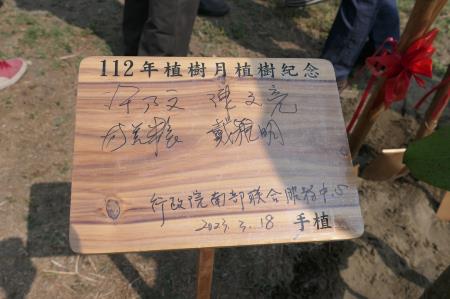 112年植樹月植樹紀念
許乃文 陳文亮
戴龍明
行政院南部联合服務中心
2023.3.18 手植